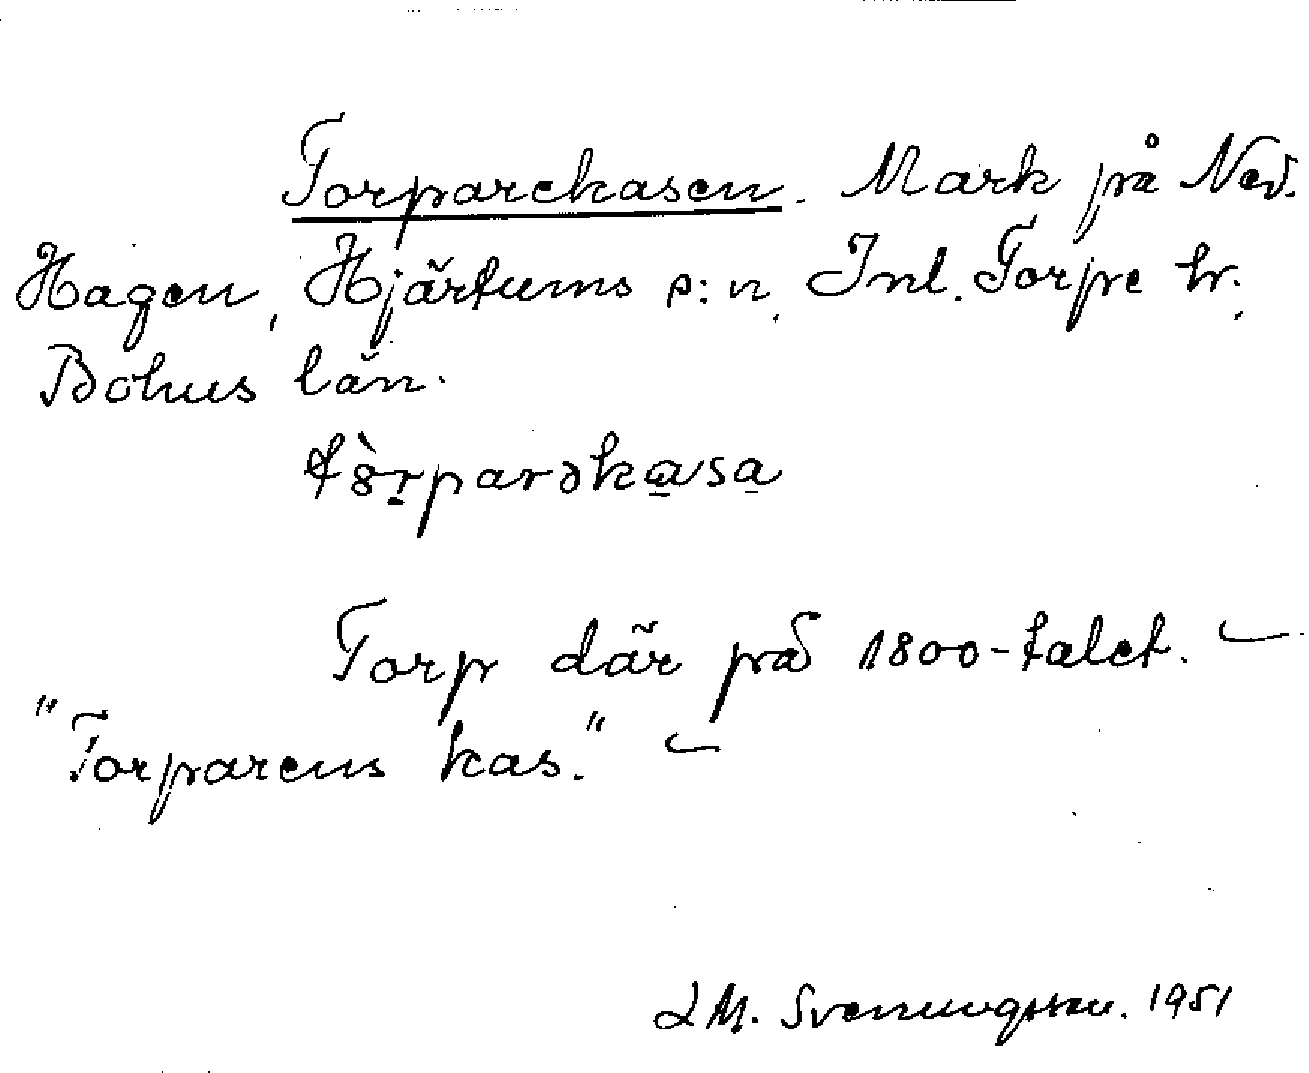 Torparekasen. Mark på Ned.
Hagen, Hjärtums s:n, Inl. Torpe hr.,
Bohus län.
Torp där på 1800-talet. —
"Torparens kas." —
L M. Svenungsson. 1951